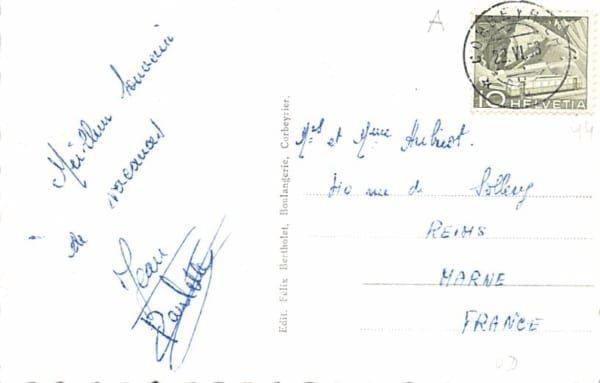 Meilleur souvenir
de vacances
Jean
Paulette
Edit. Félix Bertholet, Boulangerie, Corbeyrier.
A
CORBEYRIER
22.VI.53
10 HELVETIA
et Mme Aubriot.
rue de
REIMS
MARNE
FRANCE